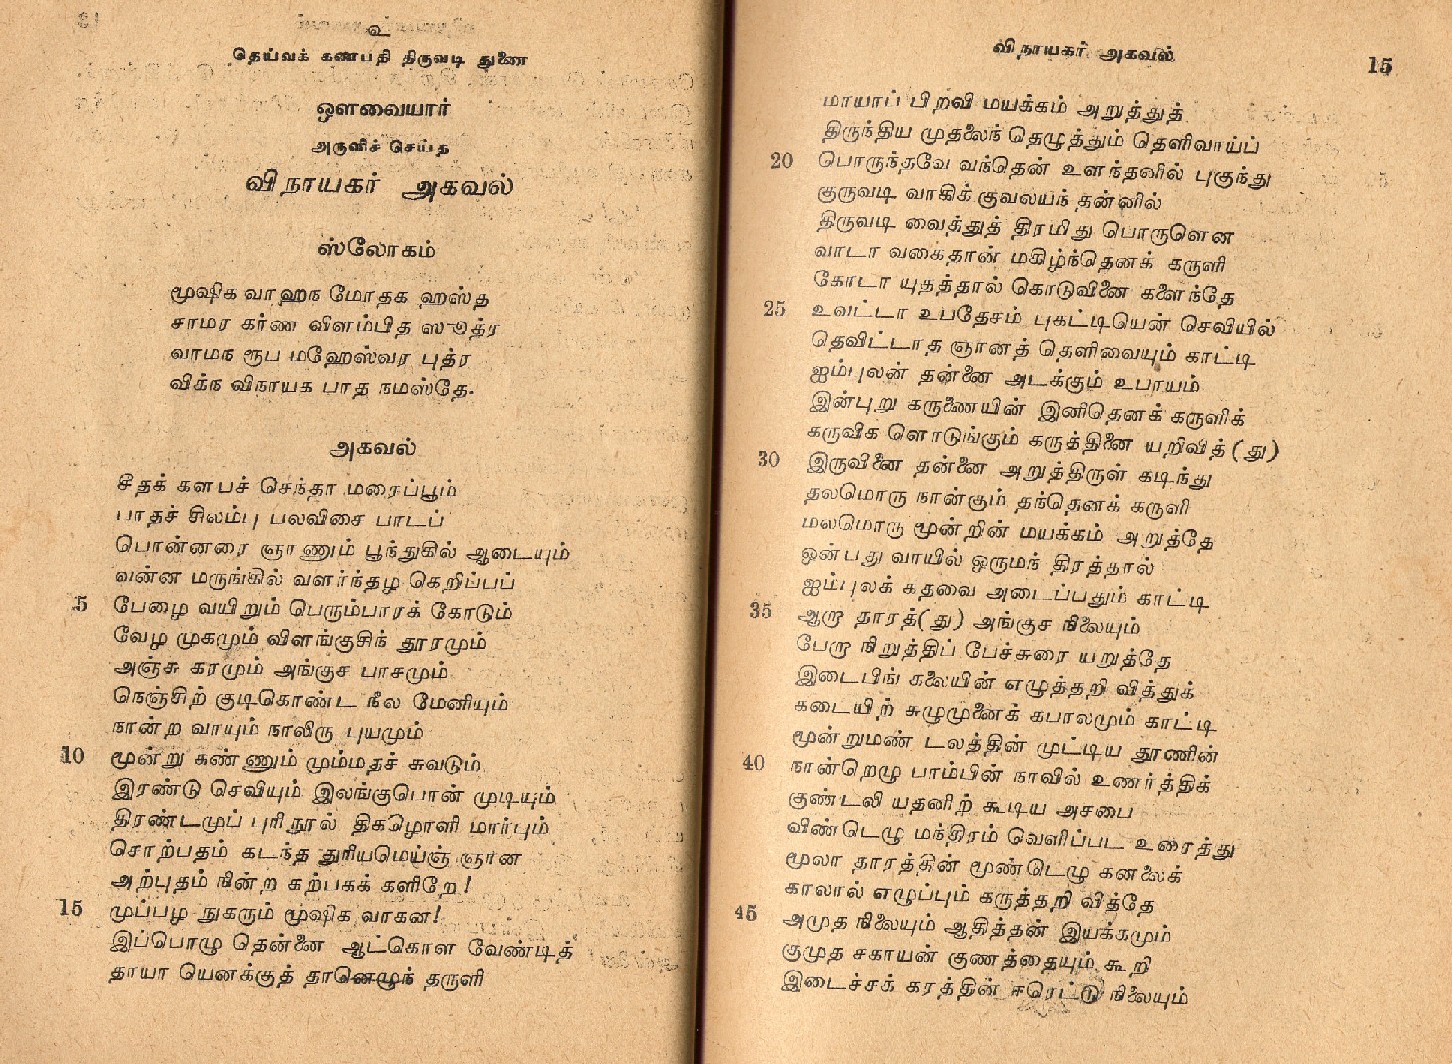 உ
தெய்வக் கணபதி திருவடி துணை
ஔவையார்
அருளிச் செய்த
விநாயகர் அகவல்
ஸ்லோகம்
மூஷிக வாஹந மோதக ஹஸ்த
சாமர கர்ண விளம்பித ஸூத்ர
வாமந ரூப மஹேஸ்வர புத்ர
விக்ந விநாயக பாத நமஸ்தே.
அகவல்
சீதக் களபச் செந்தா மரைப்பூம்
பாதச் சிலம்பு பலவிசை பாடப்
பொன்னரை ஞாணும் பூந்துகில் ஆடையும்
வன்ன மருங்கில் வளர்ந்தழ கெறிப்பப்
5 பேழை வயிறும் பெரும்பாரக் கோடும்
வேழ முகமும் விளங்குசிந் தூரமும்
அஞ்சு கரமும் அங்குச பாசமும்
நெஞ்சிற் குடிகொண்ட நீல மேனியும்
நான்ற வாயும் நாலிரு புயமும்
10 மூன்று கண்ணும் மும்மதச் சுவடும்
இரண்டு செவியும் இலங்குபொன் முடியும்
திரண்டமுப் புரிநூல் திகழொளி மார்பும்
சொற்பதம் கடந்த துரியமெய்ஞ் ஞான
அற்புதம் நின்ற கற்பகக் களிறே!
15 முப்பழ நுகரும் மூஷிக வாகன!
இப்பொழு தென்னை ஆட்கொள வேண்டித்
தாயா யெனக்குத் தானெழுந் தருளி
விநாயகர் அகவல் 15
மாயாப் பிறவி மயக்கம் அறுத்துத்
திருந்திய முதலைந் தெழுத்தும் தெளிவாய்ப்
20 பொருந்தவே வந்தென் உளந்தனில் புகுந்து
குருவடி வாகிக் குவலயந் தன்னில்
திருவடி வைத்துத் திரமிது பொருளென
வாடா வகைதான் மகிழ்ந்தெனக் கருளி
கோடா யுதத்தால் கொடுவினை களைந்தே
25 உவட்டா உபதேசம் புகட்டியென் செவியில்
தெவிட்டாத ஞானத் தெளிவையும் காட்டி
ஐம்புலன் தன்னை அடக்கும் உபாயம்
இன்புறு கருணையின் இனிதெனக் கருளிக்
கருவிக ளொடுங்கும் கருத்தினை யறிவித்(து)
30 இருவினை தன்னை அறுத்திருள் கடிந்து
தலமொரு நான்கும் தந்தெனக் கருளி
மலமொரு மூன்றின் மயக்கம் அறுத்தே
ஒன்பது வாயில் ஒருமந் திரத்தால்
ஐம்புலக் கதவை அடைப்பதும் காட்டி
35 ஆறா தாரத்(து) அங்குச நிலையும்
பேறா நிறுத்திப் பேச்சுரை யறுத்தே
இடைபிங் கலையின் எழுத்தறி வித்துக்
கடையிற் சுழுமுனைக் கபாலமும் காட்டி
மூன்றுமண் டலத்தின் முட்டிய தூணின்
40 நான்றெழு பாம்பின் நாவில் உணர்த்திக்
குண்டலி யதனிற் கூடிய அசபை
விண்டெழு மந்திரம் வெளிப்பட உரைத்து
மூலா தாரத்தின் மூண்டெழு கனலைக்
காலால் எழுப்பும் கருத்தறி வித்தே
45 அமுத நிலையும் ஆதித்தன் இயக்கமும்
குமுத சகாயன் குணத்தையும் கூறி
இடைச்சக் கரத்தின் ஈரெட்டு நிலையும்